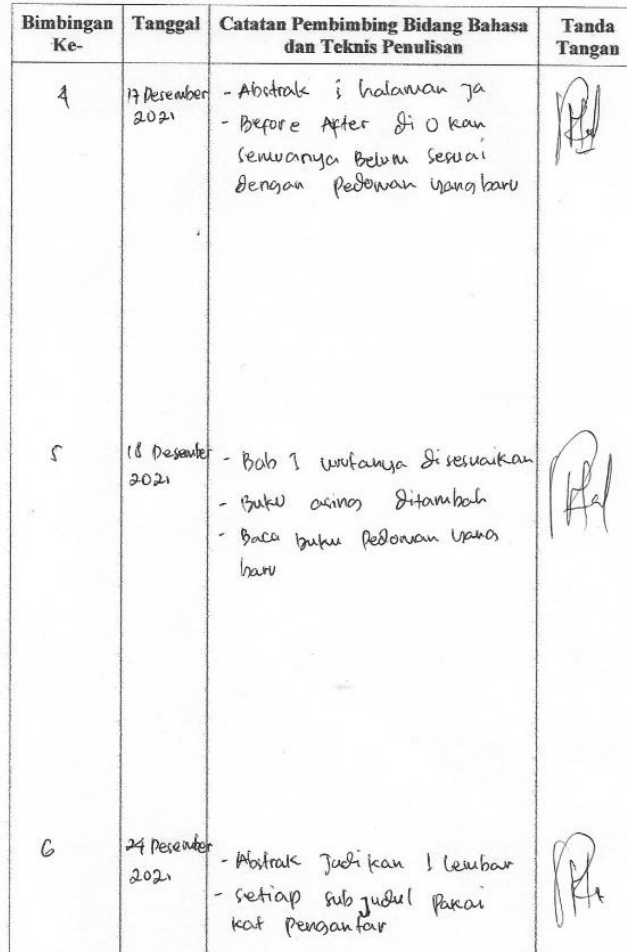 Bimbingan Ke-
Tanggal
Catatan Pembimbing Bidang Bahasa
dan Teknis Penulisan
Tanda Tangan
4
17 Desember
2021
- Abstrak 1 halaman ja
- Before After di 0 kan
semuanya Belum sesuai
dengan Pedoman yang baru
5
18 Desember
2021
- Bab 1 urutanya disesuaikan
- Buku asing ditambah
- Baca buku Pedoman yang
baru
6
24 Desember
2021
- Abstrak Jadikan 1 lembar
- setiap sub judul pakai
kat Pengantar